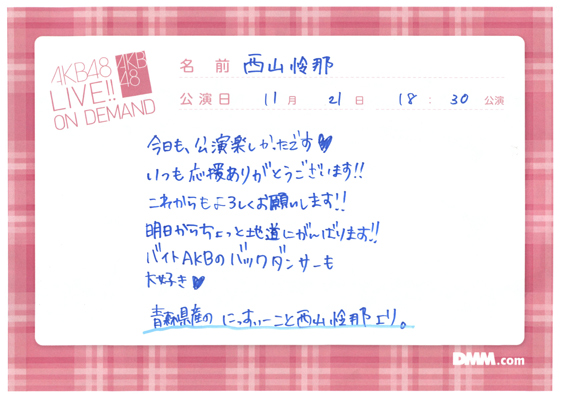 AKB48
LIVE!!
ON DEMAND
AKB
48
名 前 西山怜那
公演日 11月 21日 18:30公演
今日も、公演楽しかったです♥
いつも応援ありがとうございます!!
これからもよろしくお願いします!!
明日からちょっと地道にがんばります!!
バイトAKBのバックダンサーも
大好き♥
青森県産のにっすぃーこと西山怜那より。
DMM.com